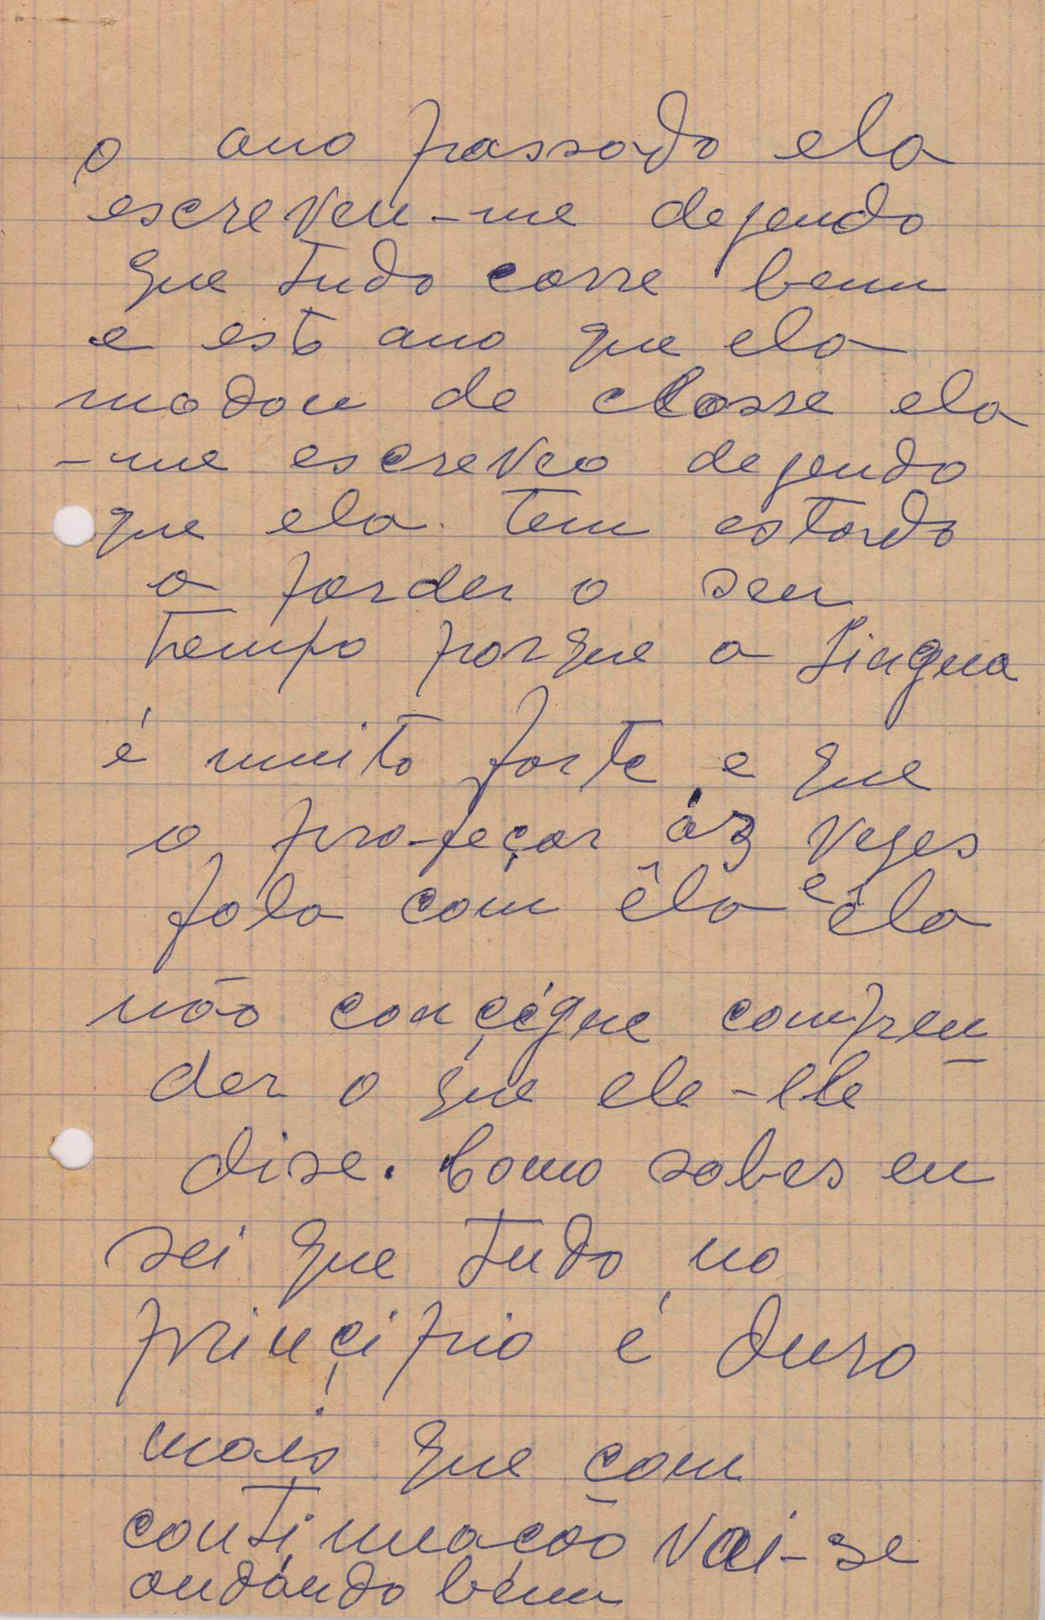 o ano passado ela
escreveu-me dejendo
que tudo corre bem
e est ano que ela
modou de classe ela
-me escreveo dejendo
que ela tem estado
a parder o seu
tempo porque a lingua
é muito forte e que
o profeçor ás vezes
fala com êla e êla
não conçégue compren
der o que ele-lle
dise. Como sabes eu
sei que tudo no
prinçipio é duro
mais que com
continuacão vai-se
andando bem